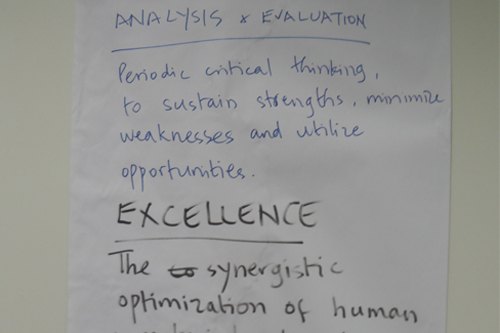 ANALYSIS & EVALUATION
Periodic critical thinking,
to sustain strengths, minimize
weaknesses and utilize
opportunities.
EXCELLENCE
The synergistic
optimization of human